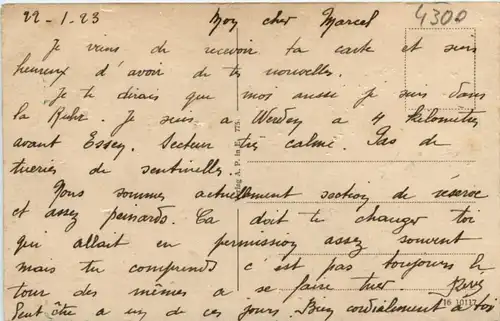 22-1.23 Mon cher Marcel 4300
Je viens de recevoir ta carte et suis
heureux d'avoir de tes nouvelles.
Je te dirais que moi aussi je suis dans
la Ruhr. Je suis a Werden a 4 kilomètres
avant Essen. Secteur très calme. Pas de
tueries de sentinelles.
Nous sommes actuellement section de réserve
et assez peinards. Ca doit te changer toi
qui allait en permission assez souvent
mais tu comprends c'est pas toujours le
tour des mêmes a se faire tuer
Peut être a un de ces jours. Bien cordialement à toi
A. P. in E. 775.
16 10117